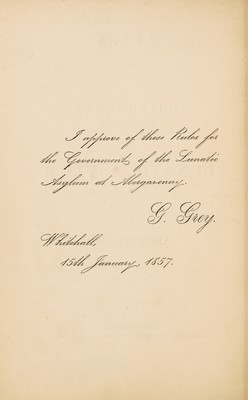 I approve of these Rules for
the Government, of the Lunatic
Asylum at Abergavenny.
G. Grey.
Whitehall,
15th January, 1857.